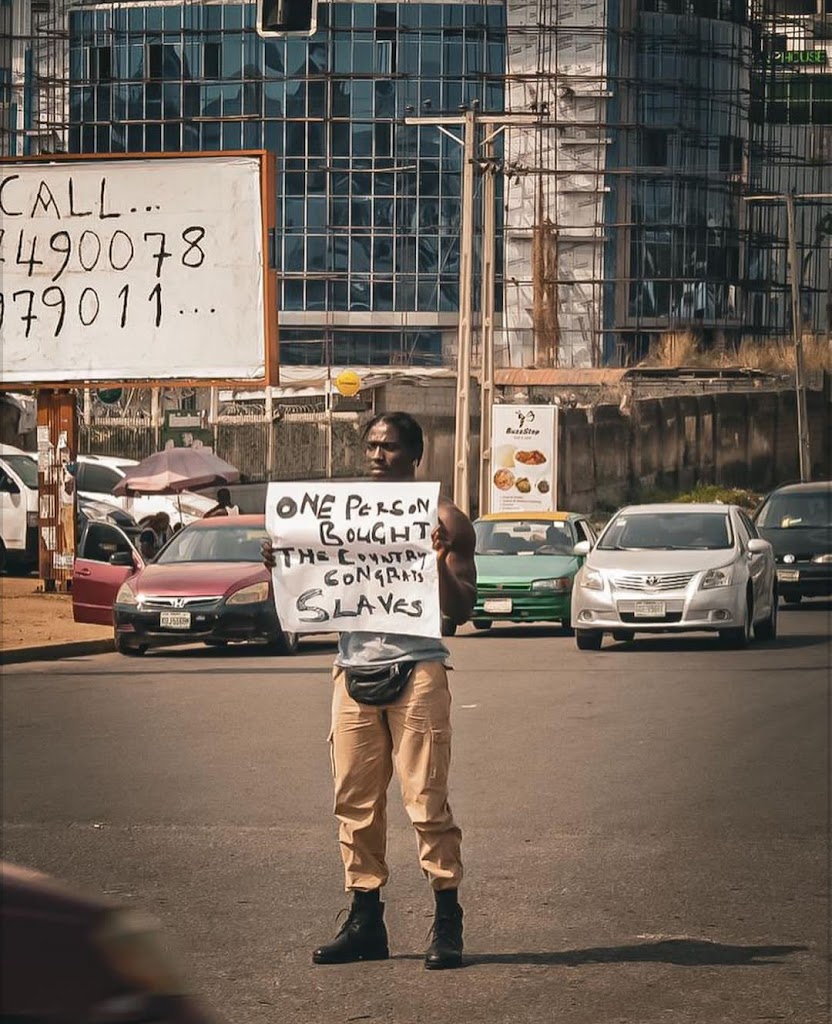 CALL...
7490078
979011...
HOUSE
BuzzStop
ONE PERSON
BOUGHT
THE COUNTRY
CONGRATS
SLAVES